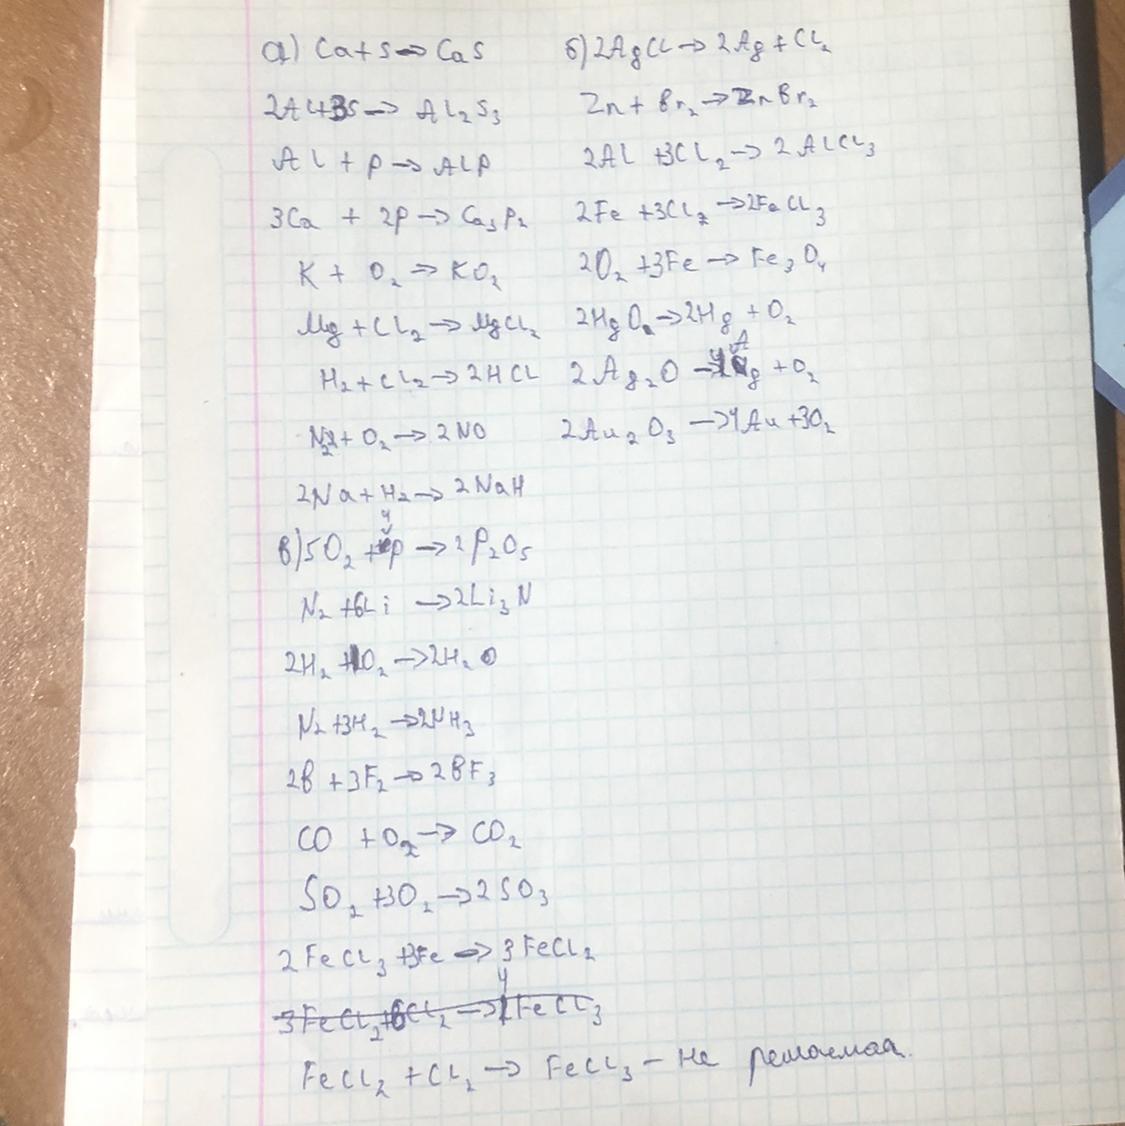 а) Ca+S→CaS
2Al+3S→ Al₂S₃
Al + P→AlP
3Ca + 2P→Ca₃P₂
K + O₂→KO₂
Mg+Cl₂→MgCl₂
H₂+Cl₂→2HCl
N₂+O₂→2NO
2Na+H₂→2NaH
б) 2AgCl→2Ag+Cl₂
Zn+Br₂→ZnBr₂
2Al+3Cl₂→2AlCl₃
2Fe+3Cl₂→2FeCl₃
2O₂+3Fe→Fe₃O₄
2HgO→2Hg+O₂
2Ag₂O→4Ag+O₂
2Au₂O₃→4Au+3O₂
в) 5O₂+4P→2P₂O₅
N₂+6Li→2Li₃N
2H₂+O₂→2H₂O
N₂+3H₂→2NH₃
2B+3F₂→2BF₃
CO+O₂→CO₂
SO₂+3O₂→2SO₃
2FeCl₃+3Fe→3FeCl₂
3FeCl₂+6Cl₂→4FeCl₃
FeCl₂+Cl₂→FeCl₃ - не решаемая.